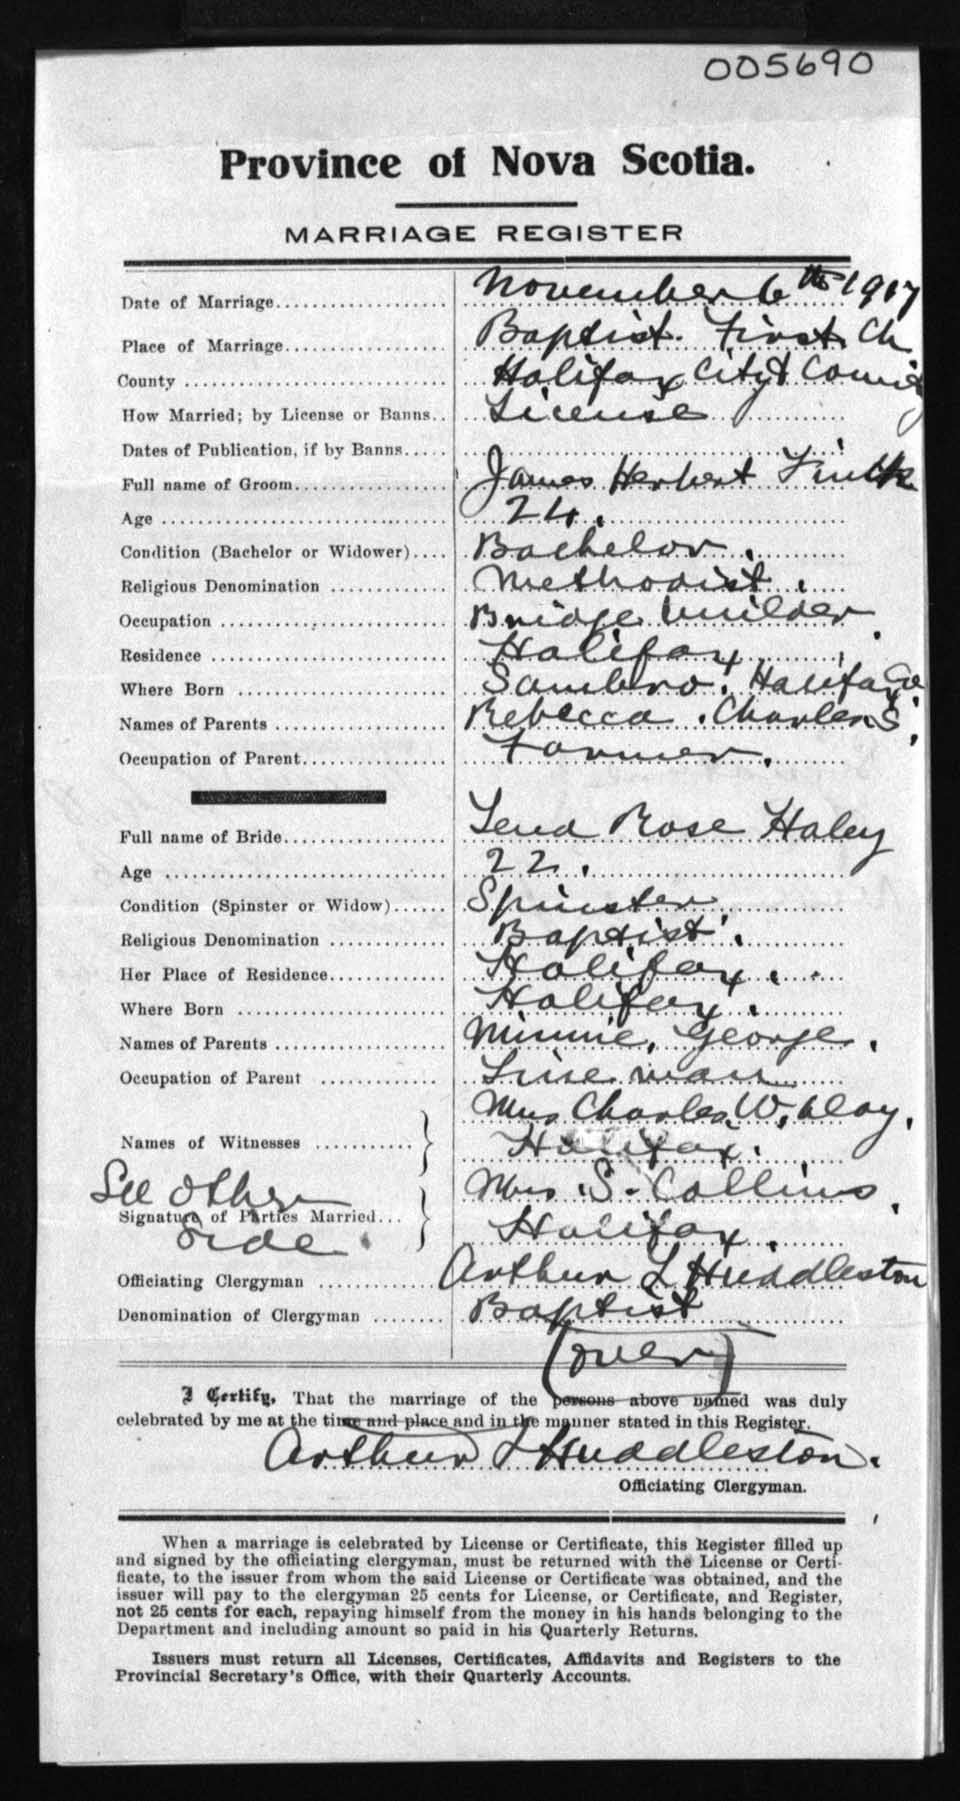 005690
Province of Nova Scotia.
MARRIAGE REGISTER
Date of Marriage November 6th 1917
Place of Marriage Baptist. First. Ch
County Halifax City & County
How Married; by License or Banns License
Dates of Publication, if by Banns
Full name of Groom James Herbert
Age 24.
Condition (Bachelor or Widower) Bachelor.
Religious Denomination Methodist.
Occupation Bridge builder.
Residence Halifax
Where Born Sambro. Halifax Co
Names of Parents Rebecca. Charles S.
Occupation of Parent Farmer.
Full name of Bride Lena Rose Haley
Age 22.
Condition (Spinster or Widow) Spinster
Religious Denomination Baptist.
Her Place of Residence Halifax.
Where Born Halifax.
Names of Parents Minnie, George.
Occupation of Parent Line man
Mrs Charles W.
Names of Witnesses Halifax.
See other Mrs. S. Collins.
Signature of Parties Married
Side Halifax.
Officiating Clergyman Arthur L Huddleston
Denomination of Clergyman Baptist
(over)
I Certify, That the marriage of the persons above named was duly
celebrated by me at the time and place and in the manner stated in this Register.
Arthur L Huddleston.
Officiating Clergyman.
When a marriage is celebrated by License or Certificate, this Register filled up
and signed by the officiating clergyman, must be returned with the License or Certi-
ficate, to the issuer from whom the said License or Certificate was obtained, and the
issuer will pay to the clergyman 25 cents for License, or Certificate, and Register,
not 25 cents for each, repaying himself from the money in his hands belonging to the
Department and including amount so paid in his Quarterly Returns.
Issuers must return all Licenses, Certificates, Affidavits and Registers to the
Provincial Secretary's Office, with their Quarterly Accounts.